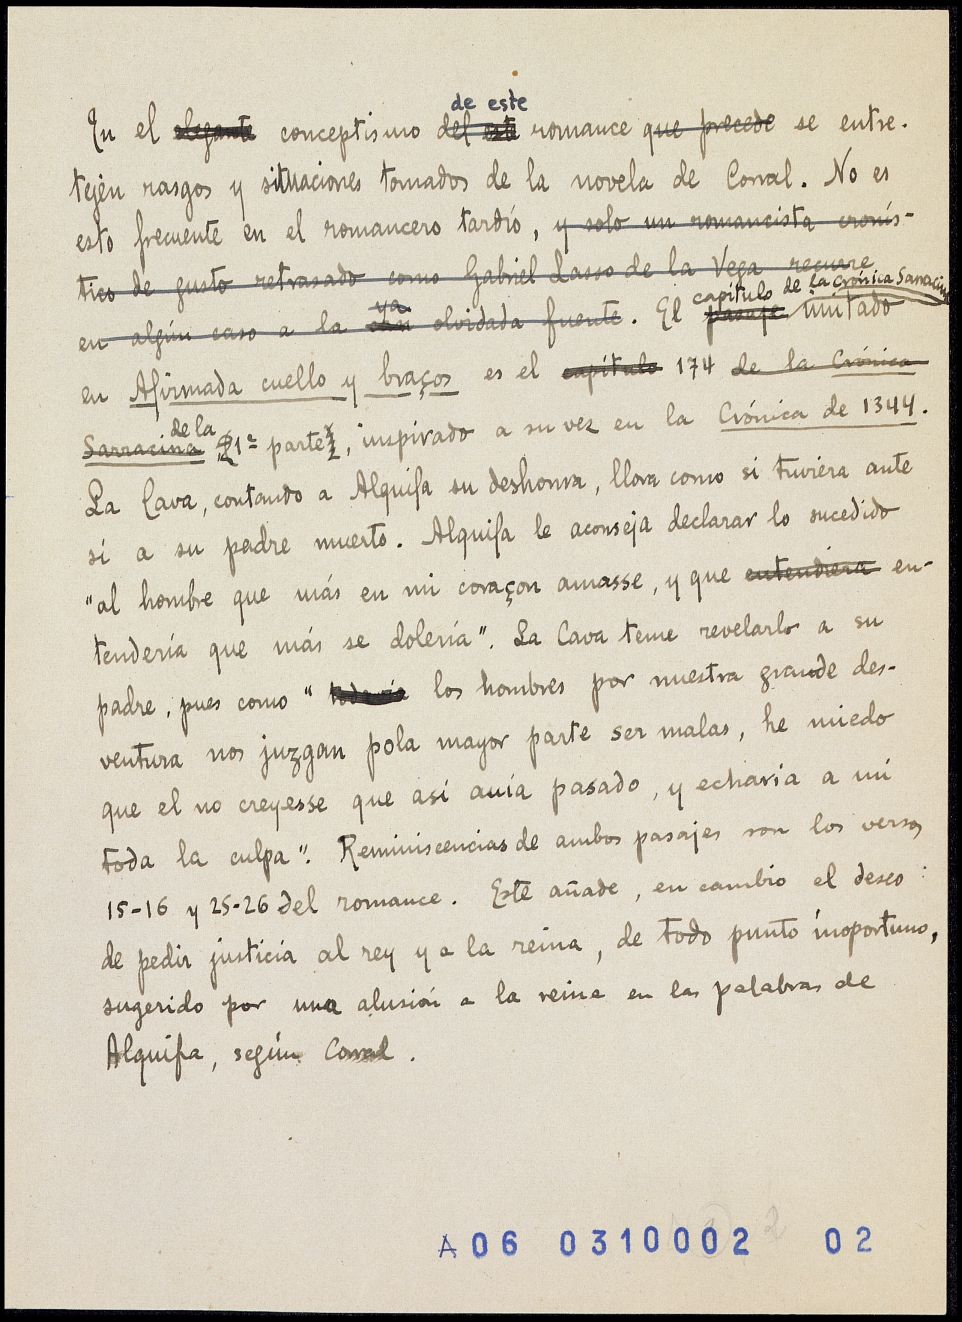 de este
En el elegante conceptismo del este romance que precede se entre-
tejen rasgos y situaciones tomados de la novela de Corral. No es
esto frecuente en el romancero tardío, y solo un romancista cronís-
tico de gusto retrasado como Gabriel Lasso de la Vega recurre
ya capítulo de la Crónica Sarracina
en algún caso a la olvidada fuente. El pasaje imitado
en Afirmada cuello y braços es el capítulo 174 de la Crónica
de la
Sarracina 1ª parte, inspirado a su vez en la Crónica de 1344.
La Cava, contando a Alquifa su deshonra, llora como si tuviera ante
sí a su padre muerto. Alquifa le aconseja declarar lo sucedido
"al hombre que más en mi coraçon amasse, y que entendiera en-
tendería que más se dolería". La Cava teme revelarlo a su
padre, pues como "todavía los hombres por nuestra grande des-
ventura nos juzgan pola mayor parte ser malas, he miedo
que el no creyesse que así auía pasado, y echaria a mí
toda la culpa". Reminiscencias de ambos pasajes son los versos
15-16 y 25-26 del romance. Este añade, en cambio el deseo
de pedir justicia al rey y a la reina, de todo punto inoportuno,
sugerido por una alusión a la reina en las palabras de
Alquifa, según Corral.
2
A06 0310002 02